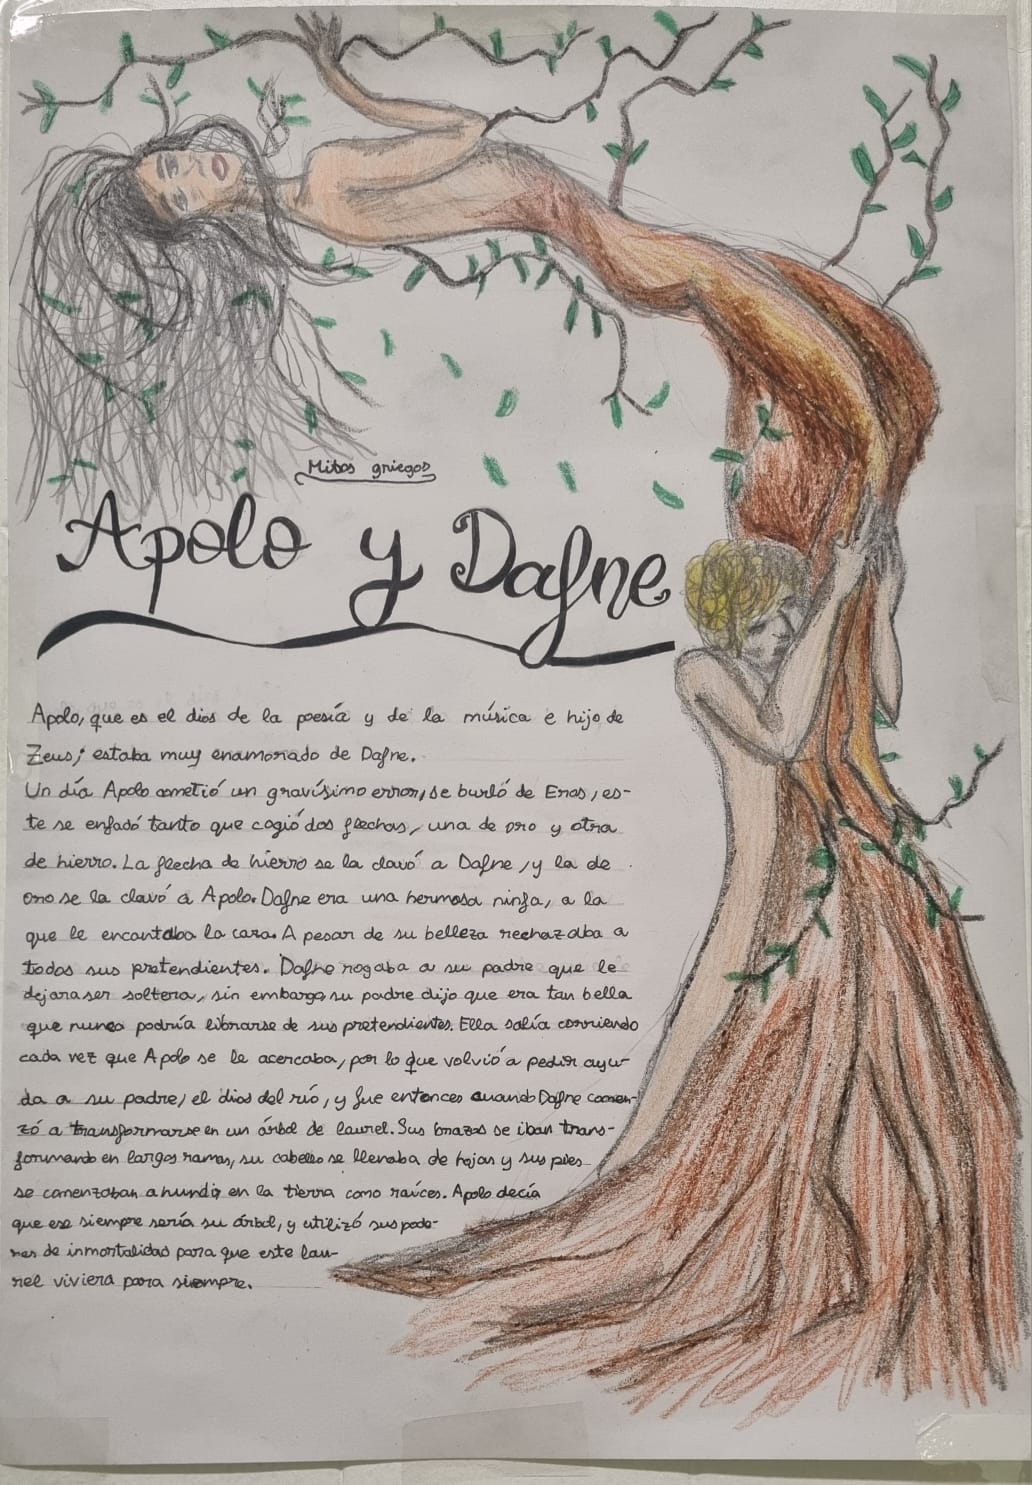 Mitos griegos
Apolo y Dafne
Apolo, que es el dios de la poesía y de la música e hijo de
Zeus; estaba muy enamorado de Dafne.
Un día Apolo cometió un gravísimo error, se burló de Eros, es-
te se enfadó tanto que cogió dos flechas, una de oro y otra
de hierro. La flecha de hierro se la clavó a Dafne, y la de
oro se la clavó a Apolo. Dafne era una hermosa ninfa, a la
que le encantaba la caza. A pesar de su belleza rechazaba a
todos sus pretendientes. Dafne rogaba a su padre que le
dejara ser soltera, sin embargo, su padre dijo que era tan bella
que nunca podría librarse de sus pretendientes. Ella salía corriendo
cada vez que Apolo se le acercaba, por lo que volvió a pedir ayu-
da a su padre, el dios del río, y fue entonces cuando Dafne comen-
zó a transformarse en un árbol de laurel. Sus brazos se iban trans-
formando en largas ramas, su cabello se llenaba de hojas y sus pies
se comenzaban a hundir en la tierra como raíces. Apolo decía
que ese siempre sería su árbol, y utilizó sus pode-
res de inmortalidad para que este lau-
rel viviera para siempre.